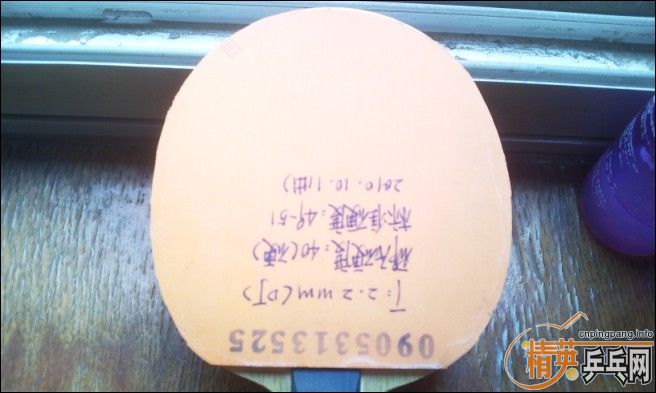 0905313525
T:2.2mm
邵氏硬度:40(硬)
标准硬度:49-51
2010.10.1
cnpingpang.info
精英乒乓网